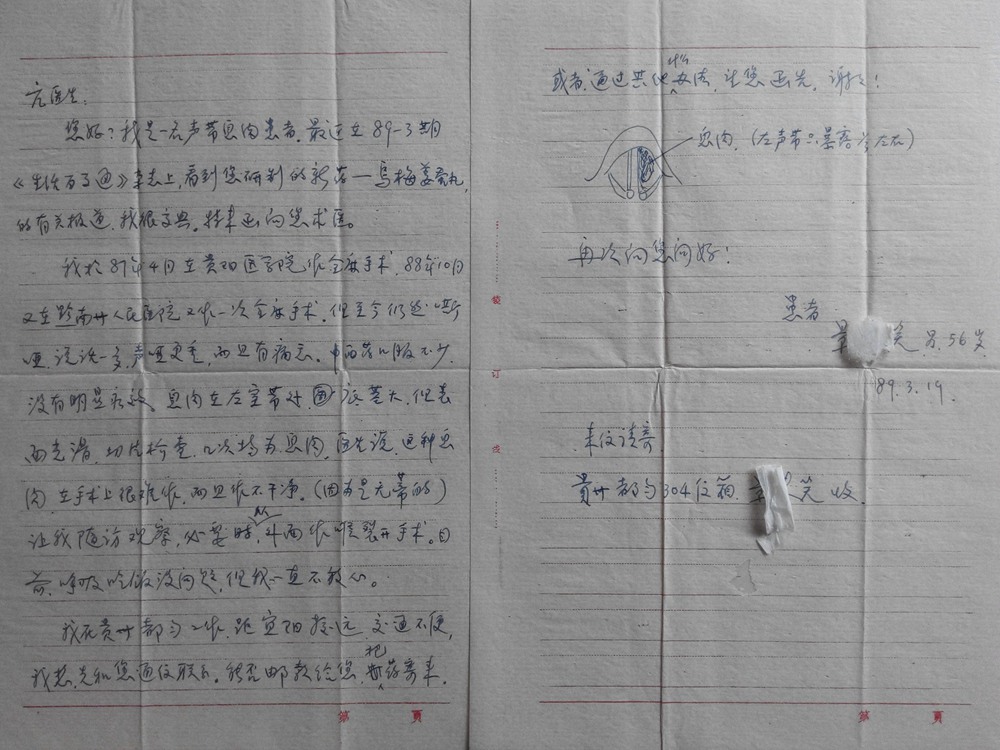 亢医生：
您好？我是一名声带息肉患者，最近在89-3期
《生活百事通》杂志上，看到您研制的新药—乌梅姜蚕丸，
的有关报道，我很高兴。特来函向您求医。
我于87年4月在贵阳医学院作全麻手术，88年10月
又在黔南州人民医院又作一次全麻手术，但至今仍然嘶
哑，说话一多，声哑更重，而且有痛感。中西药口服不少，
没有明显疗效，息肉在左室带处，面广底基大，但表
面光滑，切片检查，几次均为息肉，医生说，这种息
肉，在手术上很难作，而且作不干净。（因为是无蒂的）
让我随访观察，必要时，从外面作喉裂开手术。目
前，呼吸吃饭没问题，但我一直不放心。
我在贵州都匀工作，距宜阳较远，交通不便，
我想先和您通信联系。能否邮款给您，把药寄来。
或者通过其他什么办法，让您函告，谢谢！
息肉，（左声带只暴露⅓左右）
再次向您问好！
患者
笑 男，56岁
89.3.19.
来信请寄
贵州都匀304信箱 笑 收
装
订
线
第 頁
第 頁